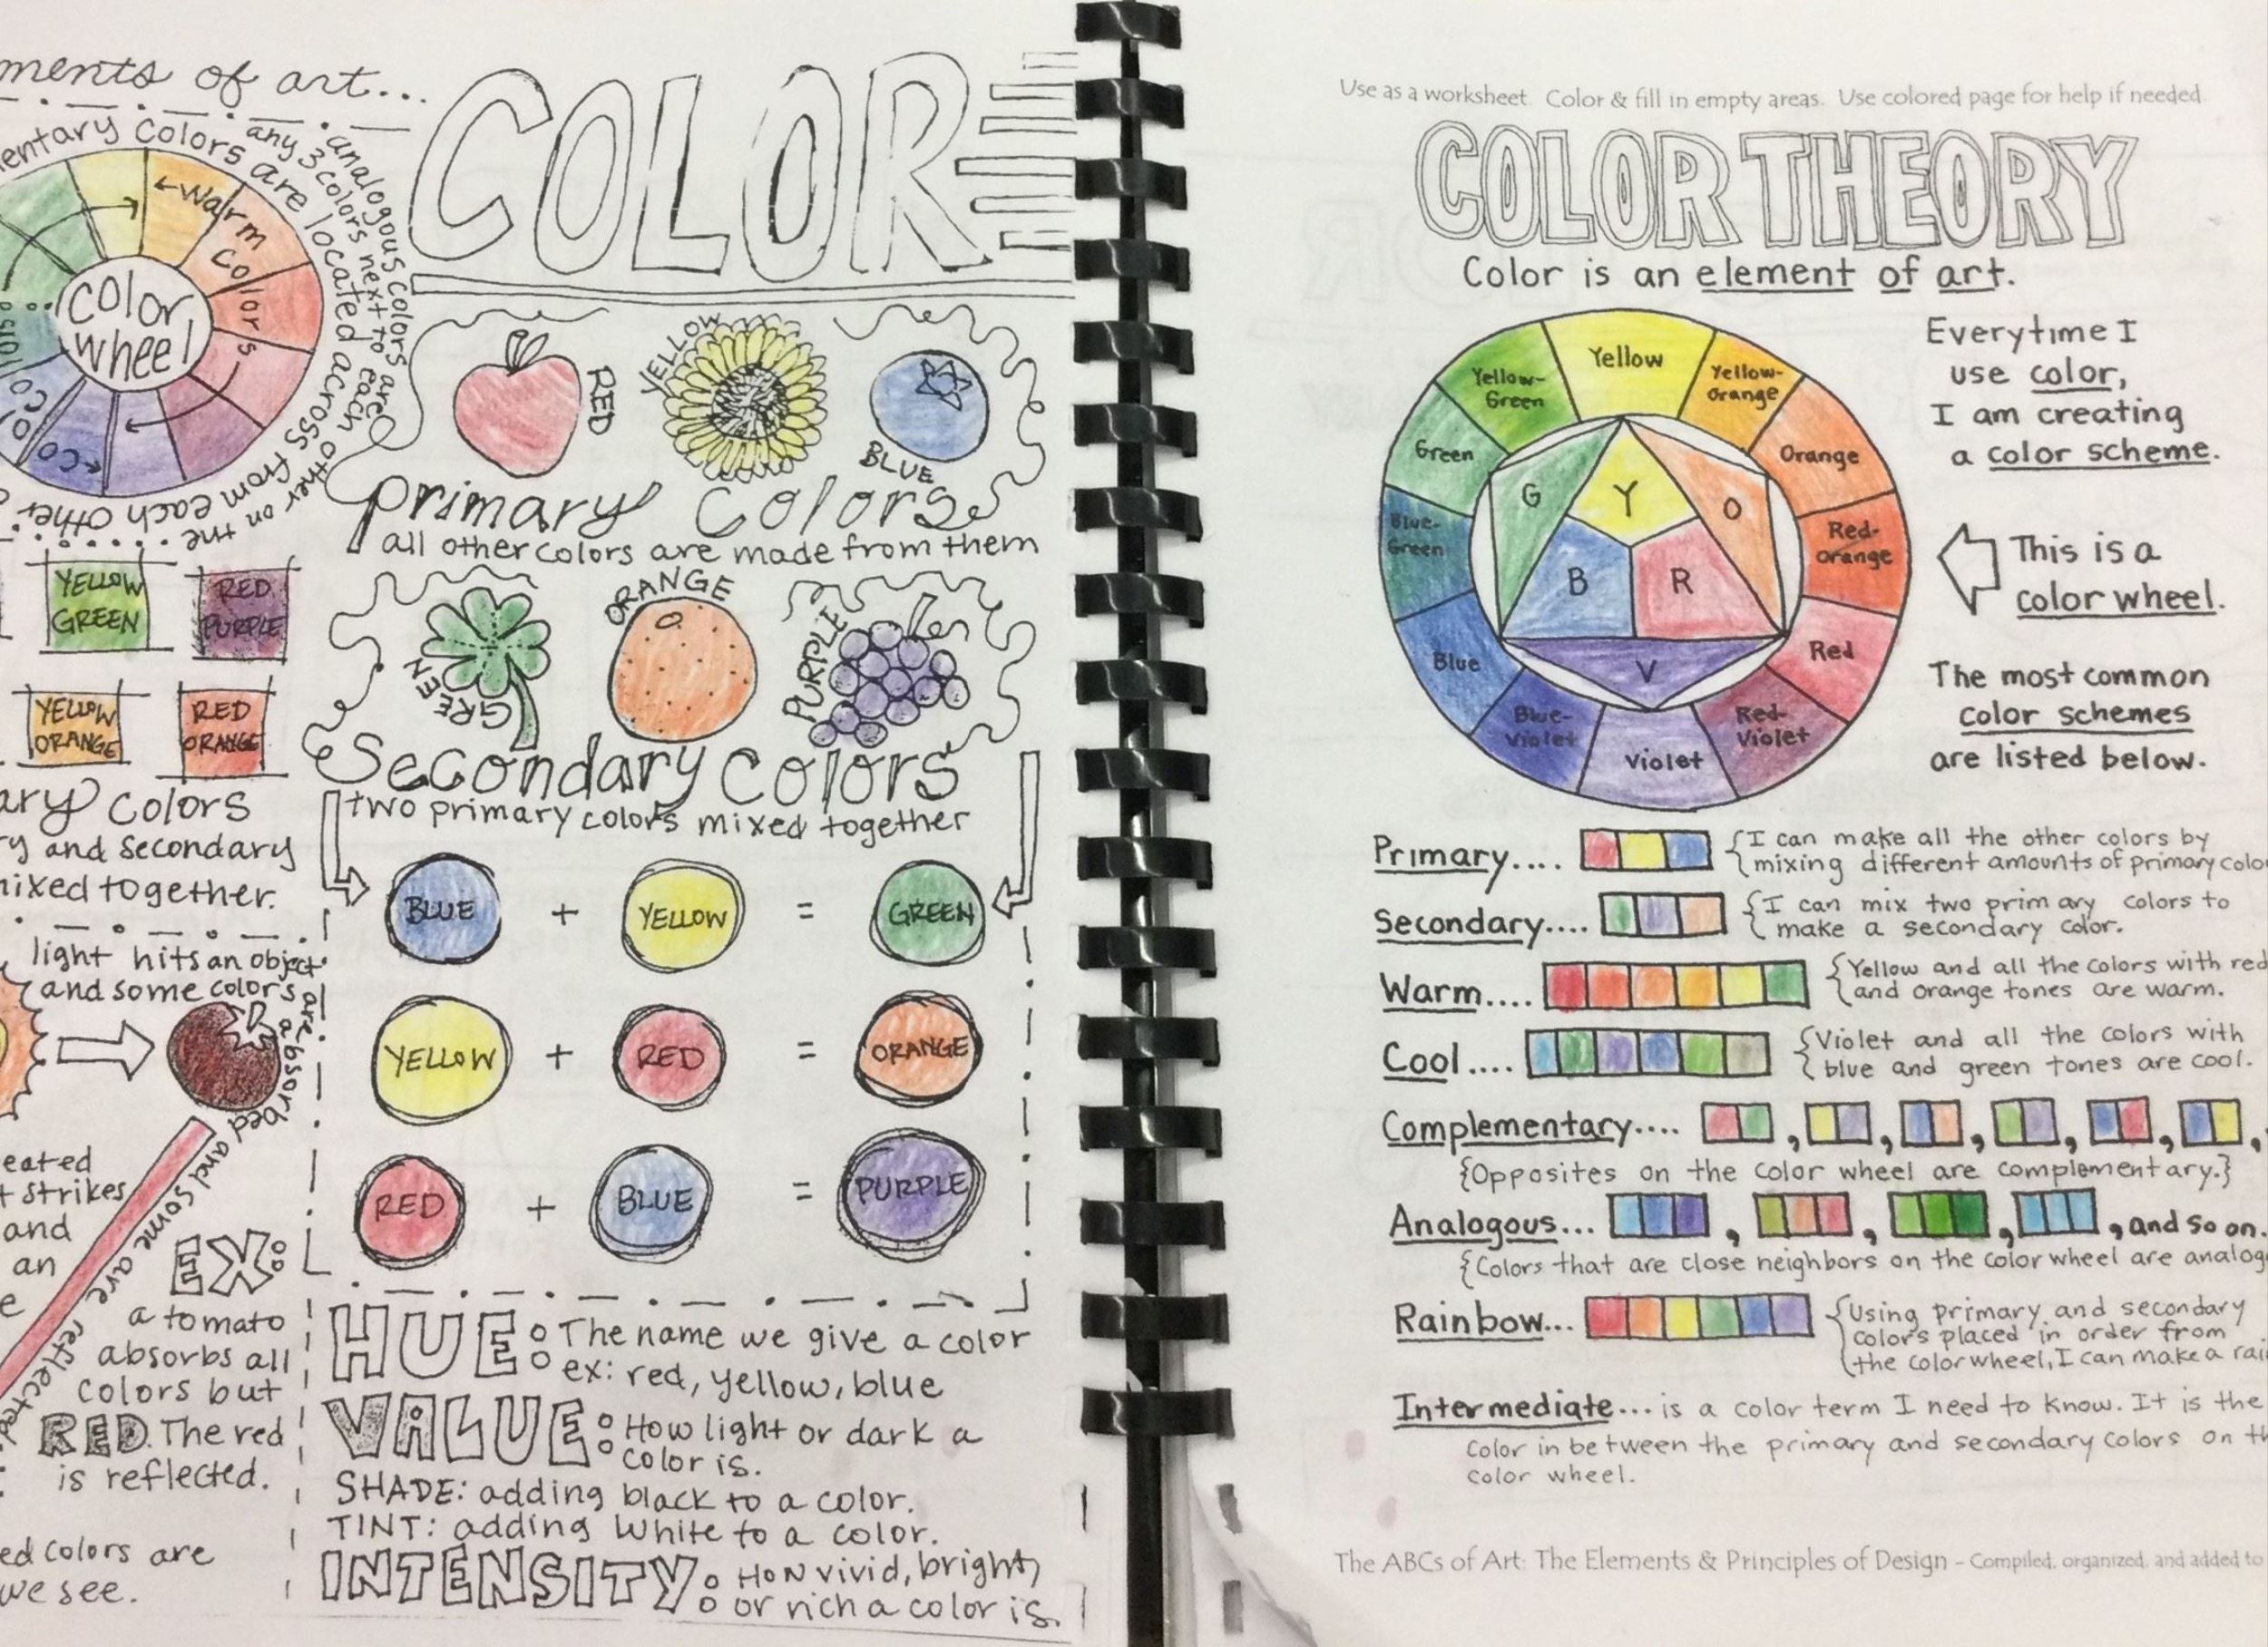 ments of art...
COLOR
entary colors are located across from each other on the
analogous colors are
any 3 colors next to each other
← warm colors
color wheel
RED
YELLOW
BLUE
primary colors
all other colors are made from them
YELLOW GREEN
RED PURPLE
YELLOW ORANGE
RED ORANGE
ary colors
y and secondary
ixed together.
GREEN
ORANGE
PURPLE
Secondary colors
two primary colors mixed together
BLUE + YELLOW = GREEN
YELLOW + RED = ORANGE
RED + BLUE = PURPLE
light hits an object
and some colors are absorbed and some are reflected
eated
t strikes
and
an
e
EX:
a tomato
absorbs all
colors but
RED. The red
is reflected.
ed colors are
we see.
HUE: The name we give a color
ex: red, yellow, blue
VALUE: How light or dark a
color is.
SHADE: adding black to a color.
TINT: adding white to a color.
INTENSITY: How vivid, bright,
or rich a color is.
Use as a worksheet. Color & fill in empty areas. Use colored page for help if needed.
COLOR THEORY
Color is an element of art.
Yellow
Yellow-Orange
Orange
Red-Orange
Red
Red-Violet
Violet
Blue-Violet
Blue
Blue-Green
Green
Yellow-Green
G
Y
O
B
R
V
Everytime I
use color,
I am creating
a color scheme.
This is a
color wheel.
The most common
color schemes
are listed below.
Primary.... {I can make all the other colors by
mixing different amounts of primary colo
Secondary.... {I can mix two primary colors to
make a secondary color.
Warm.... {Yellow and all the colors with red
and orange tones are warm.
Cool.... {Violet and all the colors with
blue and green tones are cool.
Complementary.... , , , , , ,
{Opposites on the color wheel are complementary.}
Analogous... , , , , and so on.
{Colors that are close neighbors on the color wheel are analog
Rainbow... {Using primary and secondary
colors placed in order from
the color wheel, I can make a rai
Intermediate... is a color term I need to know. It is the
color in between the primary and secondary colors on th
color wheel.
The ABCs of Art: The Elements & Principles of Design - Compiled, organized, and added to